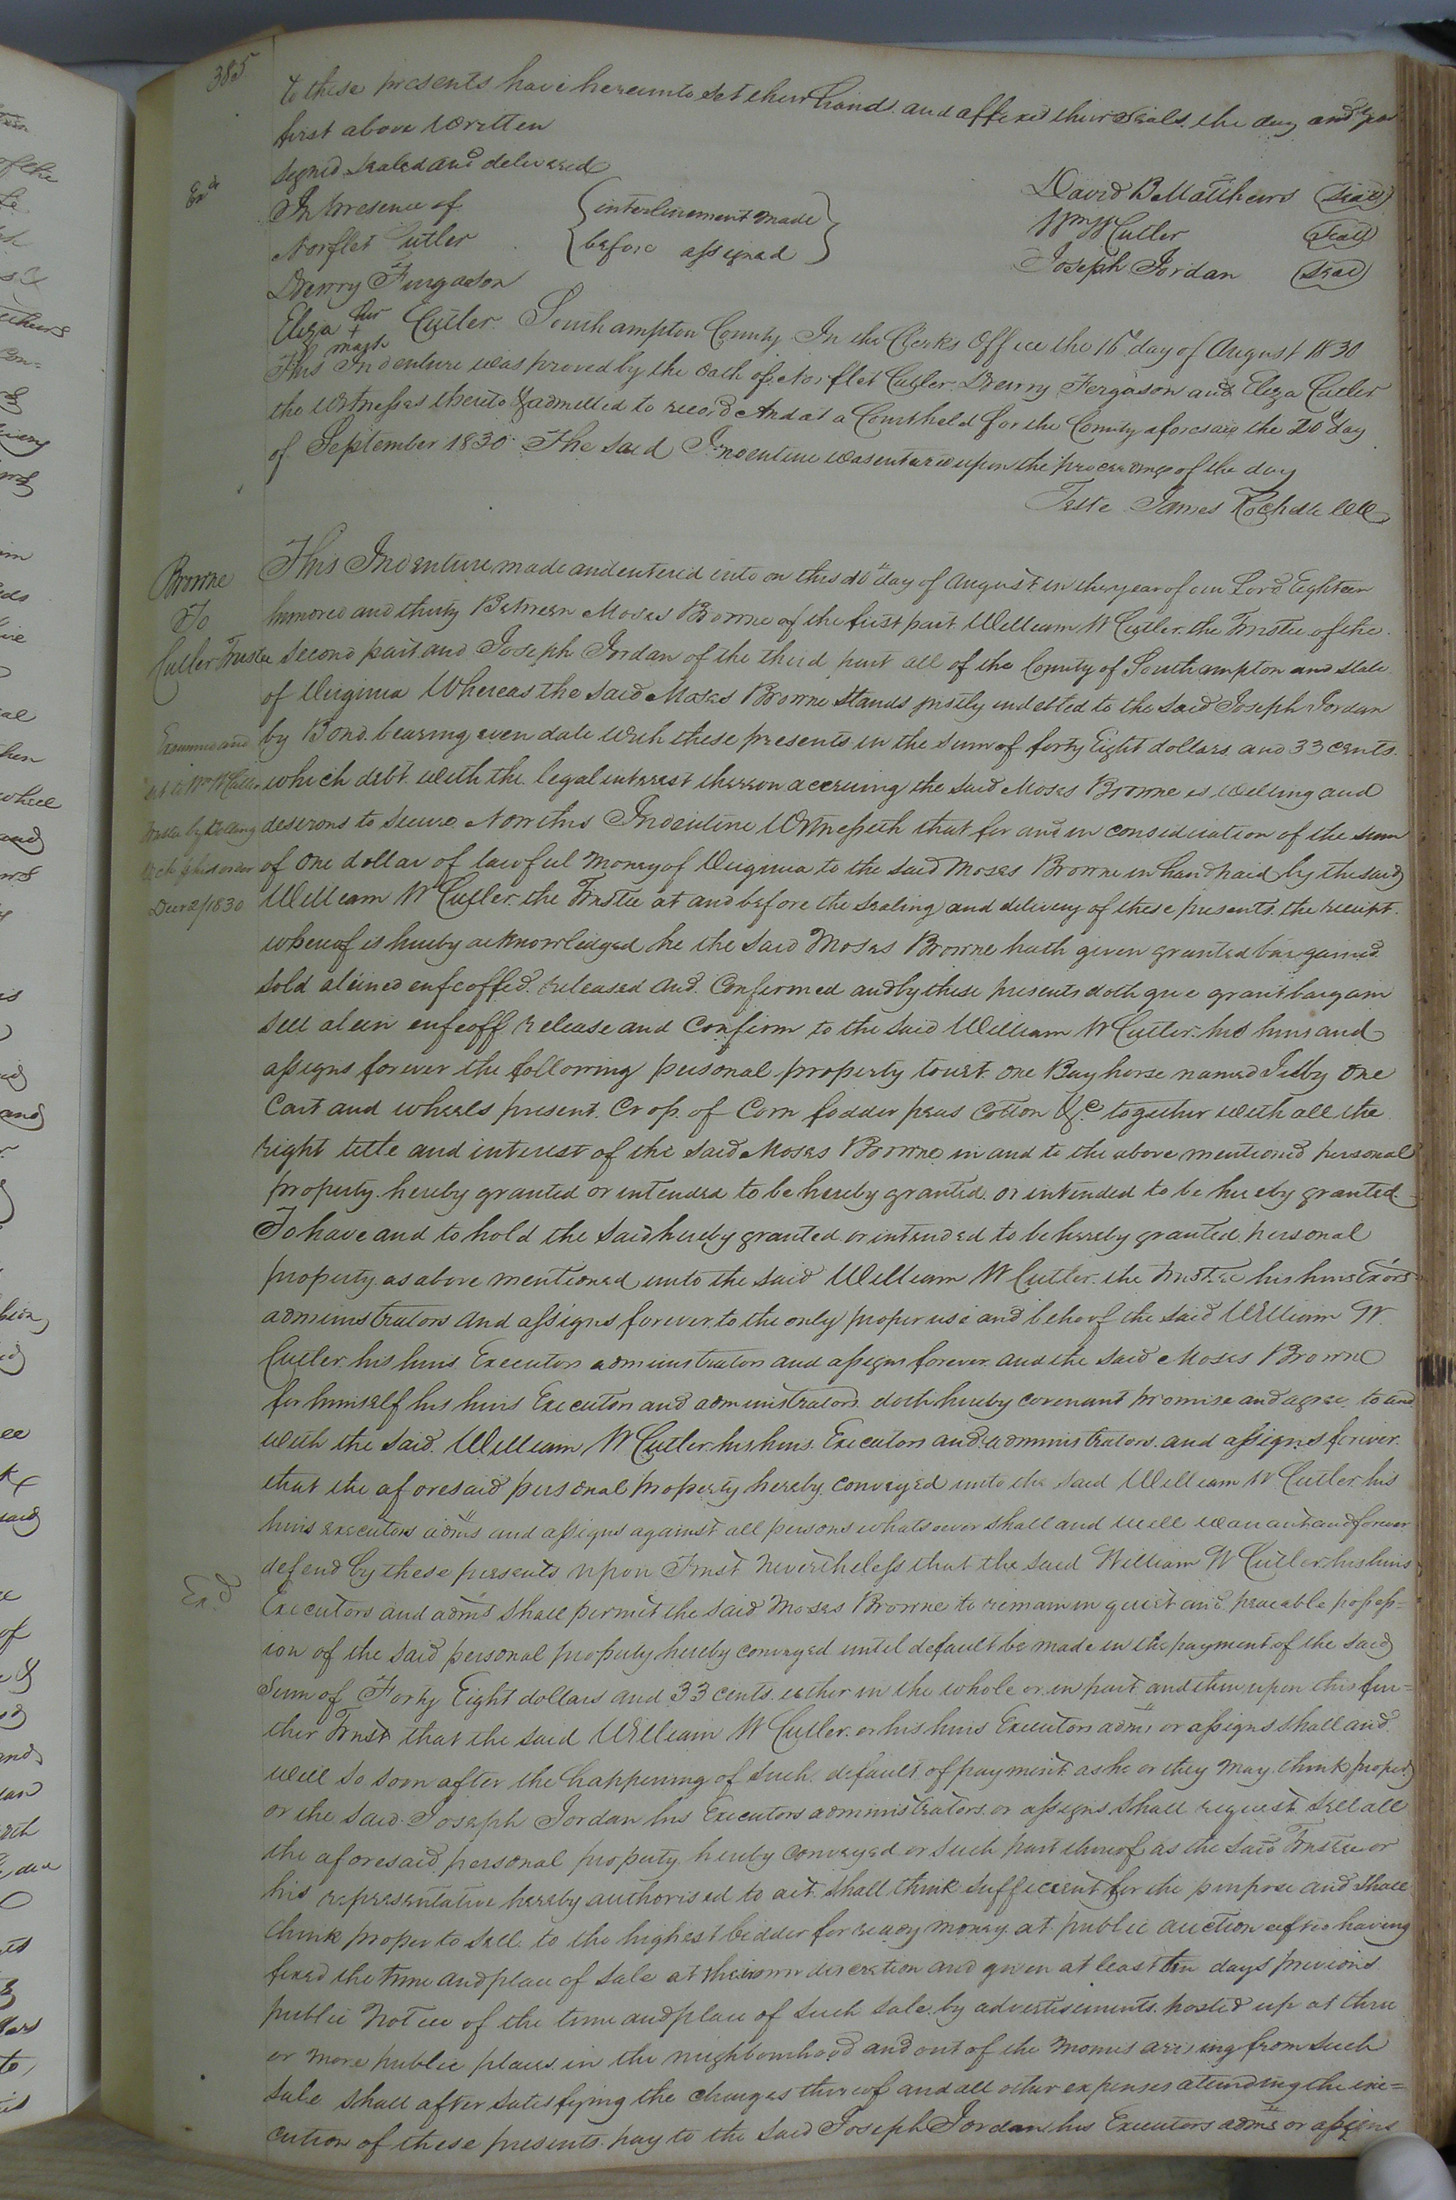 385
to these presents have hereunto set their hands and affixed their seals the day and year
first above written
Signed sealed and delivered
Exd
In presence of
Norflet Cutler
Drewry Fergason
{interlinement made
before assigned}
David B Matthews (Seal)
Wm W Cutler (Seal)
Joseph Jordan (Seal)
Eliza her + mark Cutler
Southampton County In the Clerks Office the 16th day of August 1830
This Indenture was proved by the oath of Norflet Cutler Drewry Fergason and Eliza Cutler
the witnesses thereto & admitted to record And at a Court held for the County aforesaid the 20th day
of September 1830 The said Indenture was entered upon the proceedings of the day
Teste James Rochelle
Browne
To
Cutler Trustee
Examined and
by Kelling
Decr 1830
This Indenture made and entered into on this day of August in the year of our Lord Eighteen
hundred and thirty Between Moses Browne of the first part William W Cutler the Trustee of the
second part and Joseph Jordan of the third part all of the County of Southampton and state
of Virginia Whereas the said Moses Browne stands justly indebted to the said Joseph Jordan
by Bond bearing even date with these presents in the sum of forty Eight dollars and 33 cents
which debt with the legal interest thereon accruing the said Moses Browne is willing and
desirous to secure Now this Indenture Witnesseth that for and in consideration of the sum
of one dollar of lawful money of Virginia to the said Moses Browne in hand paid by the said
William W Cutler the Trustee at and before the sealing and delivery of these presents the receipt
whereof is hereby acknowledged he the said Moses Browne hath given granted bargained
sold aliened enfeoffed released and confirmed and by these presents doth give grant bargain
sell alein enfeoff release and confirm to the said William W Cutler his heirs and
assigns forever the following personal property towit one Bay horse named one
Cart and wheels present crop of Corn fodder peas Cotton &c together with all the
right title and interest of the said Moses Browne in and to the above mentioned personal
property hereby granted or intended to be hereby granted or intended to be hereby granted
To have and to hold the said hereby granted or intended to be hereby granted personal
property as above mentioned unto the said William W Cutler the Trustee his heirs Exors
administrators and assigns forever to the only proper use and behoof the said William W
Cutler his heirs Executors administrators and assigns forever and the said Moses Browne
for himself his heirs Executors and administrators doth hereby covenant promise and agree to and
with the said William W Cutler his heirs Executors and administrators and assigns forever
that the aforesaid personal property hereby conveyed unto the said William W Cutler his
heirs executors adms and assigns against all persons whatsoever shall and will warrant and forever
defend by these presents upon Trust nevertheless that the said William W Cutler his heirs
Exd
Executors and adms shall permit the said Moses Browne to remain in quiet and peacable possess=
ion of the said personal property hereby conveyed until default be made in the payment of the said
sum of Forty Eight dollars and 33 cents either in the whole or in part and then upon this fur=
ther Trust that the said William W Cutler or his heirs Executors adms or assigns shall and
will so soon after the happening of such default of payment as he or they may think proper
or the said Joseph Jordan his Executors administrators or assigns shall request sell all
the aforesaid personal property hereby conveyed or such part thereof as the said Trustee or
his representative hereby authorised to act shall think sufficient for the purpose and shall
think proper to sell to the highest bidder for ready money at public auction after having
fixed the time and place of sale at their own discretion and given at least ten days previous
public notice of the time and place of such sale by advertisements posted up at three
or more public places in the neighbourhood and out of the monies arising from such
sale shall after satisfying the charges thereof and all other expenses attending the exe=
cution of these presents pay to the said Joseph Jordan his Executors adms or assigns